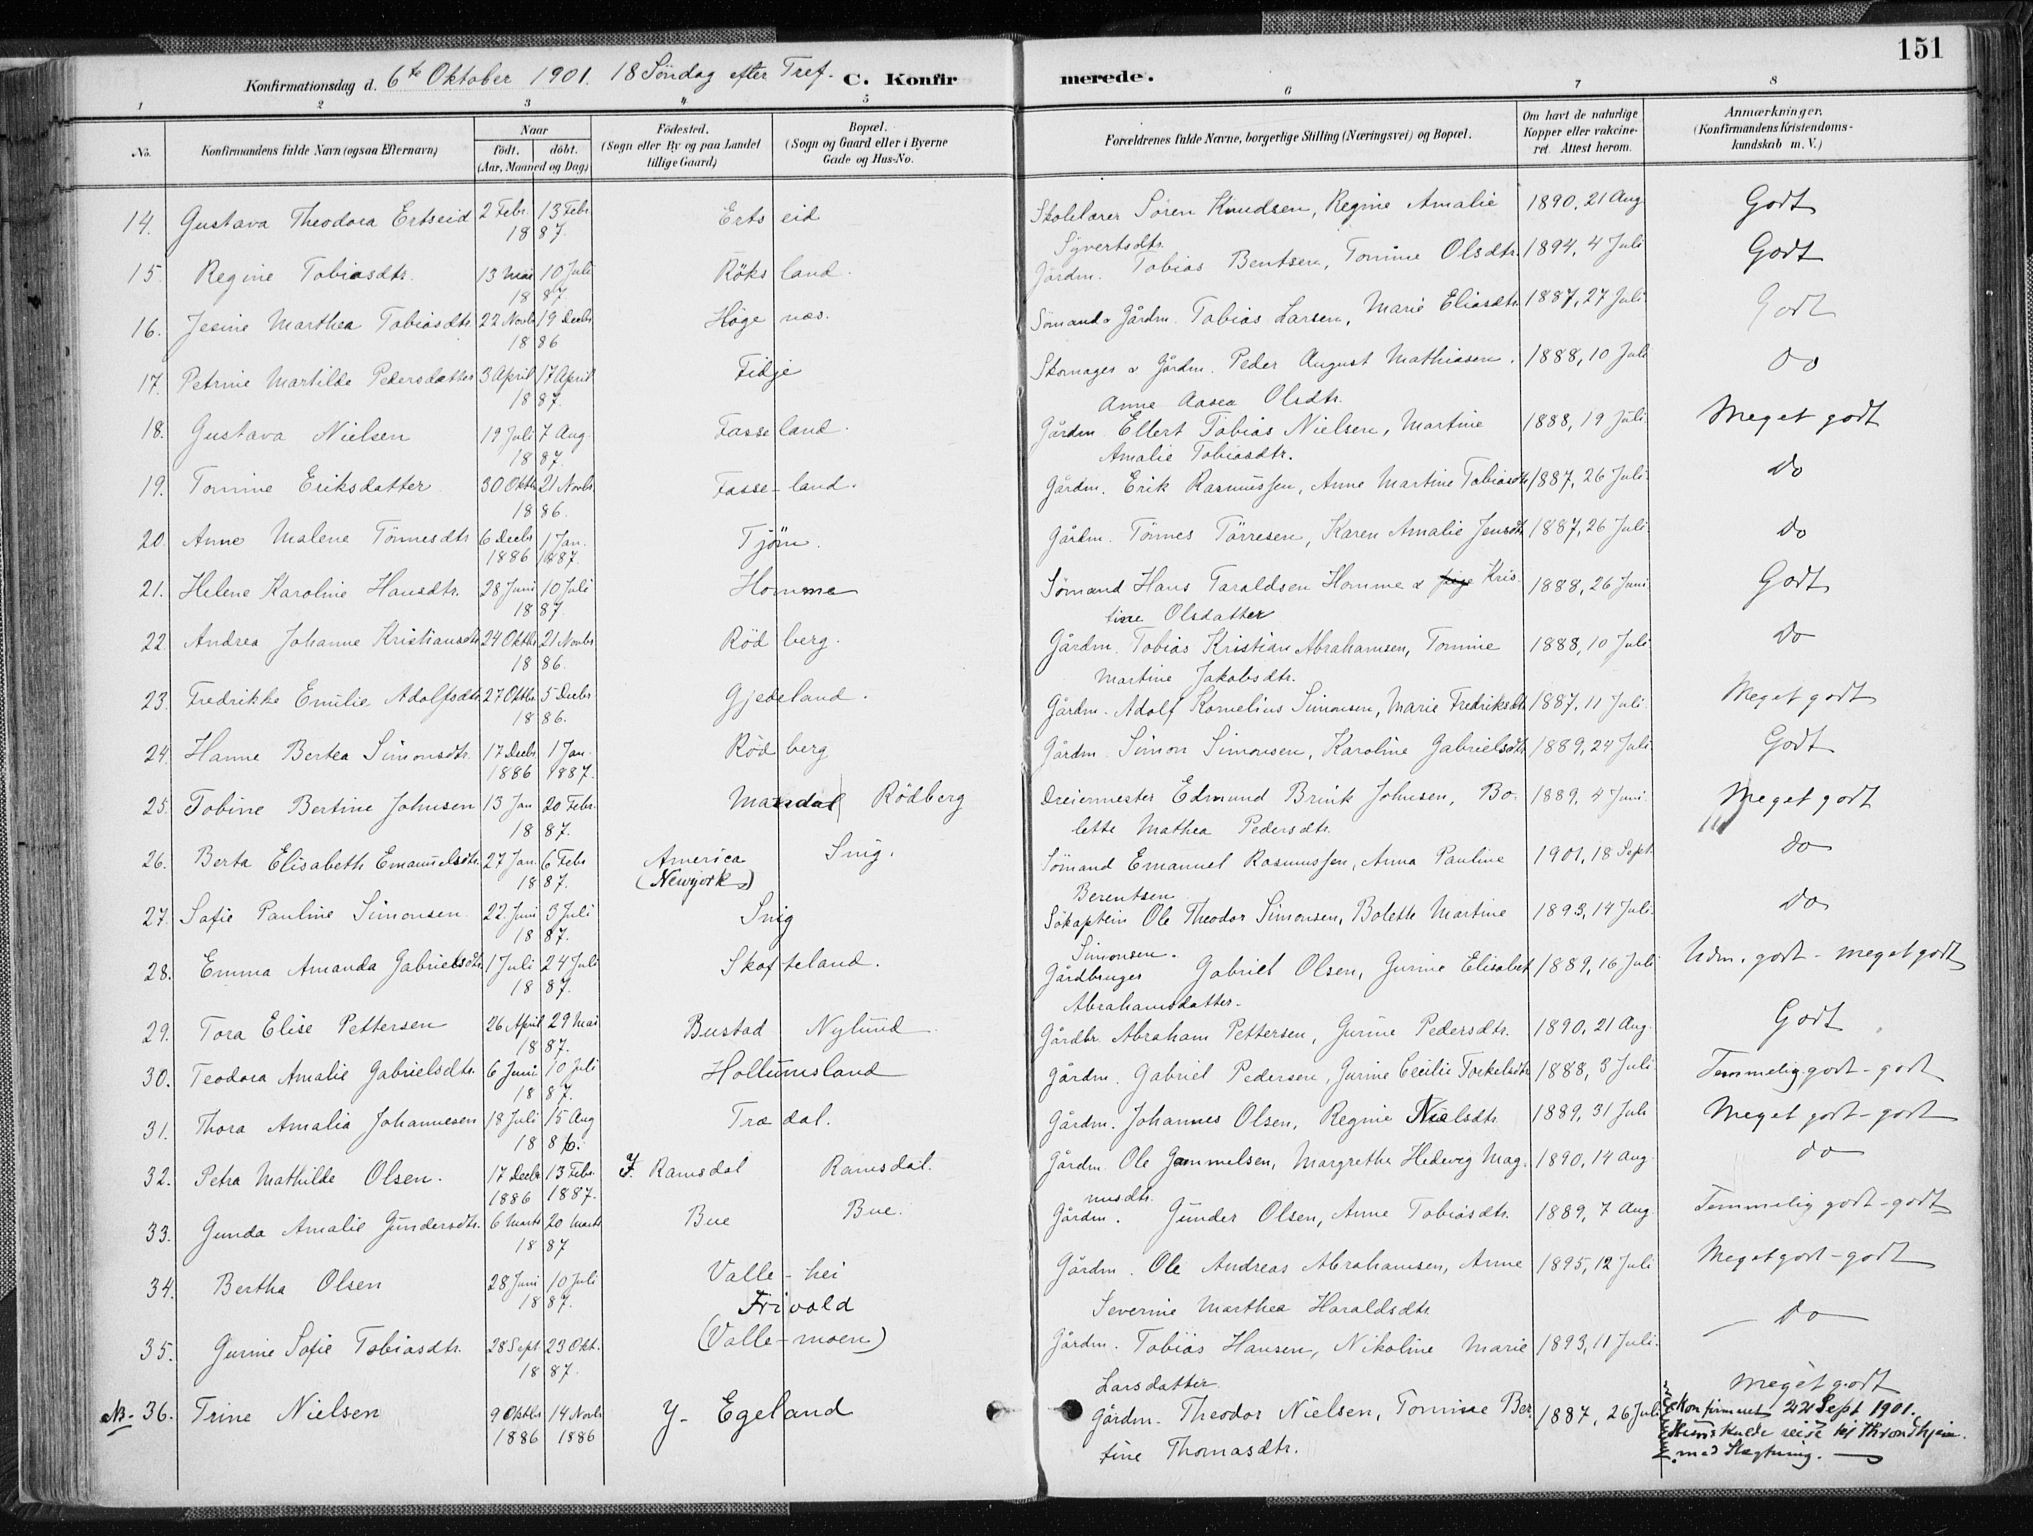 151
Konfirmationsdag d. 6te Oktober 1901. 18 Söndag efter Tref. C. Konfirmerede.
1 2 3 4 5 6 7 8
No. Konfirmandens fulde Navn (ogsaa Efternavn) Naar födt. döbt. (Aar, Maaned og Dag) Födested. (Sogn eller By og paa Landet tillige Gaard) Bopæl. (Sogn og Gaard eller i Byerne Gade og Hus-No. Forældrenes fulde Navne, borgerlige Stilling (Næringsvei) og Bopæl. Om havt de naturlige Kopper eller vakcineret. Attest herom. Anmærkninger. (Konfirmandens Kristendomskundskab m. V.)
14. Gustava Theodora Ertseid 2 Febr. 13 Febr. 1887. Ertseid Skolelærer Sören Knudsen, Regine Amalie Syvertsdtr. 1890, 21 Aug Godt
15. Regine Tobiasdtr. 13 Mai 10 Juli 1887. Röksland. Gårdm. Tobias Bentsen, Tomine Olsdtr. 1894, 4 Juli Godt
16. Jesine Marthea Tobiasdtr. 22 Novbr 19 Decbr 1886 Högenæs. Sömand & Gårdm. Tobias Larsen, Marie Eliasdtr. 1887, 27 Juli Godt
17. Petrine Martilde Pedersdatter 3 April 17 April 1887. Fidje Skomager & Gårdm. Peder August Mathiasen. Anne Aasea Olsdtr. 1888, 10 Juli Do
18. Gustava Nielsen 19 Juli 7 Aug. 1887. Fasseland. Gårdm. Ellert Tobias Nielsen, Martine Amalie Tobiasdtr. 1888, 19 Juli. Meget godt
19. Tomine Eriksdatter 30 Oktbr 21 Novbr. 1886. Fasse-land. Gårdm. Erik Rasmussen, Anne Martine Tobiasdtr 1887, 26 Juli. Do
20. Anne Malene Tönnesdtr 6 Decbr 1886 1 Jan. 1887. Tjöm. Gårdm. Tönnes Törresen, Karen Amalie Jensdtr 1887, 26 Juli. Do
21. Helene Karoline Hansdtr. 28 Juni 10 Juli 1887 Homme Sömand Hans Taraldsen Homme & Kristine Olsdatter 1888, 26 Juni. Godt
22. Andrea Johanne Kristiansdtr 24 Oktbr 21 Novbr 1886. Rödberg. Gårdm. Tobias Kristian Abrahamsen, Tomine Martine Jakobsdtr. 1888, 10 Juli Do
23. Fredrikke Emilie Adolfsdtr 27 Oktbr 5 Decbr 1886. Gjedeland. Gårdm. Adolf Kornelius Simonsen, Marie Fredriksdtr 1887, 11 Juli. Meget godt
24. Hanne Bertea Simonsdtr. 17 Decbr 1886 1 Jan. 1887. Rödberg Gårdm. Simon Simonsen, Karoline Gabrielsdtr 1889, 24 Juli Godt
25. Tobine Bertine Johnsen 13 Jan 20 Febr. 1887. Mandal Rödberg Dreiermester Edmund Brink Johnsen, Bolette Mathea Pedersdtr. 1889, 4 Juni. Meget godt
26. Berta Elisabeth Emanuelsdtr. 27 Jan. 6 Febr 1887. America (Newyork) Snig. Sömand Emanuel Rasmussen, Anna Pauline Berentsen 1901, 18 Sept. Do
27. Sofie Pauline Simonsen 22. Juni 3 Juli 1887. Snig Sökaptein Ole Theodor Simonsen, Bolette Martine Simonsen. 1893, 14 Juli. Do
28. Emma Amanda Gabrielsdtr. 1 Juli 24 Juli 1887. Skofteland. Gårdbruger Gabriel Olsen, Gurine Elisabet Abrahamsdatter. 1889, 16 Juli Udm. godt - meget godt
29. Tora Elise Pettersen 26 April 29 Mai 1887. Bustad Nylund. Gårdbr. Abraham Pettersen, Gurine Pedersdtr. 1890, 21 Aug. Godt
30. Teodora Amalie Gabrielsdtr. 6 Juni 10 Juli 1887. Hollumsland Gårdm. Gabriel Pedersen, Gurine Cecilie Torkelsdtr 1888, 3 Juli. Temmelig godt - godt
31. Thora Amalia Johannesen 18 Juli 15 Aug 1886. Trædal. Gårdm. Johannes Olsen, Regine Nielsdtr. 1889, 31 Juli Meget godt - godt
32. Petra Mathilde Olsen. 17 Decbr 1886 13 Febr. 1887. Y. Ramsdal Ramsdal. Gårdm. Ole Gammelsen, Margrethe Hedevig Magnusdtr. 1890, 14 Aug. do
33. Gunda Amalie Gundersdtr. 6 Marts 20 Marts 1887 Bue Bue. Gårdm. Gunder Olsen, Anne Tobiasdtr. 1889, 7 Aug. Temmelig godt - godt
34. Bertha Olsen 28 Juni 10 Juli 1887. Valle-hei Gårdm. Ole Andreas Abrahamsen, Anne Severine Marthea Haraldsdtr 1895, 12 Juli Meget godt - godt
35. Gurine Sofie Tobiasdtr. 28 Sept 23 Okt. 1887. Frivold (Valle-moen) Gårdm. Tobias Hansen, Nikoline Marie Larsdatter 1893, 11 Juli. Do
NB. 36. Trine Nielsen 9 Oktbr 1886 14 Novbr 1886 Y. Egeland Gårdm. Theodor Nielsen, Tomine Bertine Thomasdtr. 1887, 26 Juli meget godt
Konfirmeret 22 Sept 1901.
Hun skulde reise til Throndhjem
med Slægtning.